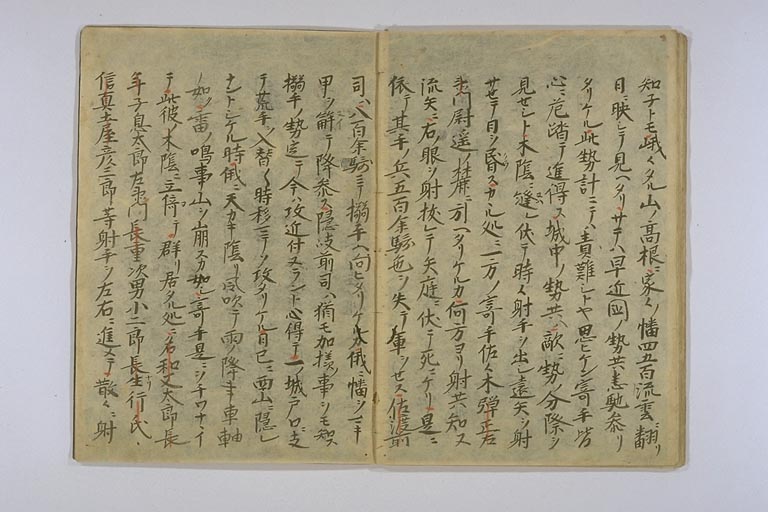 知子トモ峨〻タル山ノ高根ニ家〻ノ幡四五百流雲ニ翻リ
日ニ映シテ見ヘタリサテハ早近国ノ勢共悉馳参リ
タリケル此勢計ニテハ責難シトヤ思ヒケン寄手皆
心ニ危踏テ進得ス城中ノ勢共ハ敵ニ勢ノ分際シ
見セシト木陰ニ縫レ伏テ時〻射手シ出シ遠矢シ射
サセテ日シ昏スカル処ニ一方ノ寄手佐〻木弾正左
衛門尉遥ノ麓ニ引ヘタリケルカ何方ヨリ射共知ス
流矢ニ右ノ眼シ射抜レテ矢庭ニ伏テ死ニケリ是ニ
依テ其手ノ兵五百余騎色シ失テ軍シセス佐渡前
司ハ八百余騎ニテ搦手ヘ向ヒタリケルカ俄ニ幡シ巻キ
甲シ解テ降参ス隠岐前司ハ猶モ加様ノ事シモ知ス
搦手ノ勢定テ今ハ攻近付ヌラント心得テ一ノ城戸口ニ支
テ荒手シ入替〻時移マテソ攻タリケル日已ニ西山ニ隠レ
ナントシケル時俄ニ天カキ陰リ風吹テ雨ノ降事車軸
ノ如ク雷ノ鳴事山シ崩スカ如シ寄手是ニシチワナイ
テ此彼ノ木陰ニ立倚テ群リ居タル処ニ名和又太郎長
年子息太郎左衛門長重次男小二郎長生行氏
信真土屋彦三郎等射手シ左右ニ進メテ散〻ニ射